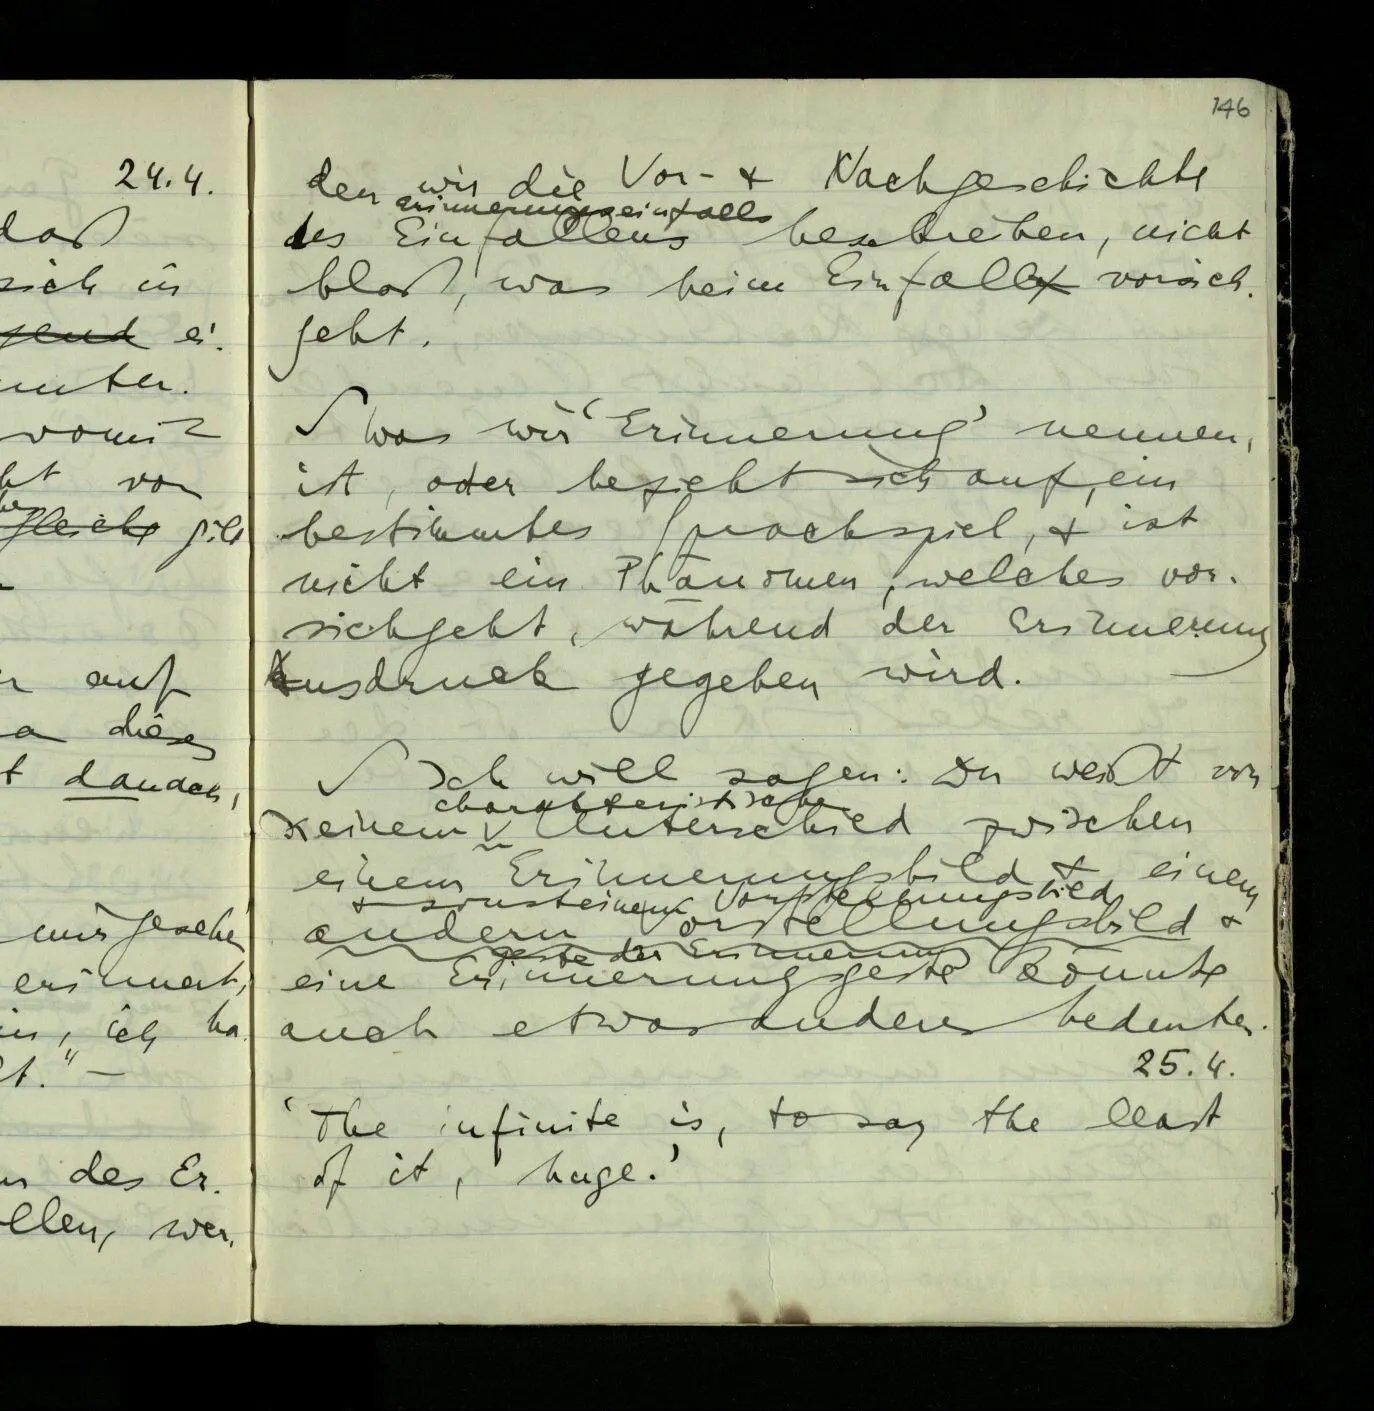 146
24.4.
daß
sich in
ei-
von
auf
dieses
danach,
mir gesehe
erinnert,
ich ha-
des Er-
ollen, wer-
den wir die Vor- & Nachgeschichte
erinnerungseinfalls
des Einfallens beschreiben, nicht
bloß, was beim Einfall vorsich-
geht.
√ Was wir ‘Erinnerung’ nennen,
ist, oder bezieht sich auf, ein
bestimmtes Sprachspiel, & ist
nicht ein Phänomen, welches vor-
sichgeht, während der Erinnerung
Ausdruck gegeben wird. —
√ Ich will sagen: Du weißt von
charakteristischen
keinem Unterschied zwischen
einem Erinnerungsbild & einem
& sonst einem Vorstellungsbild
andern Vorstellungsbild &
Geste der Erinnerung
eine Erinnerungsgeste könnte
auch etwas anderes bedeuten.
25.4.
‘The infinite is, to say the least
of it, huge.’